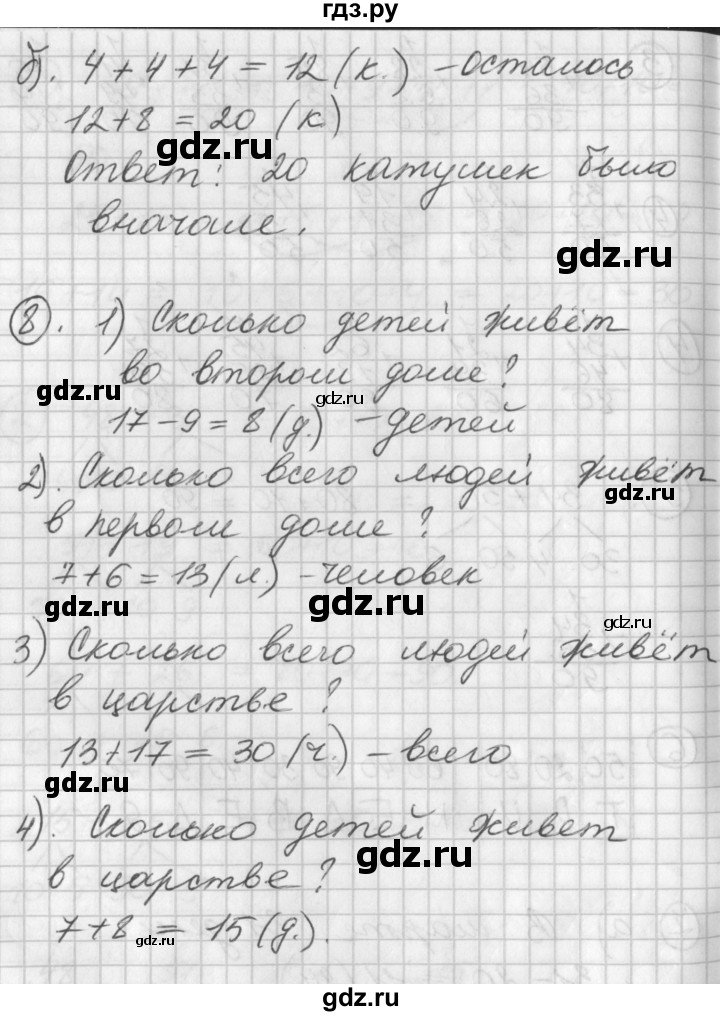 гдз.ру
б). 4 + 4 + 4 = 12 (к.) – осталось
12 + 8 = 20 (к)
gdz.ru
Ответ: 20 катушек было
вначале.
gdz.ru
8. 1) Сколько детей живёт
во втором доме?
gdz.ru
gdz.ru
17 – 9 = 8 (д.) – детей
2). Сколько всего людей живёт
gdz.ru
в первом доме?
7 + 6 = 13 (л.) – человек
gdz.ru
gdz.ru
gdz.ru
3) Сколько всего людей живёт
в царстве?
13 + 17 = 30 (ч.) – всего
gdz.ru
4). Сколько детей живет
gdz.ru
в царстве?
7 + 8 = 15 (д.).
gdz.ru
gdz.ru